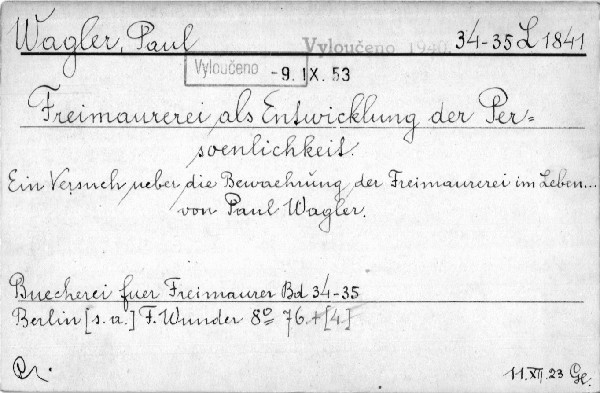 Wagler, Paul
Vyloučeno 1940. 34-35 L 1841
Vyloučeno -9. IX. 53
Freimaurerei als Entwicklung der Per=
soenlichkeit.
Ein Versuch ueber die Bewaehrung der Freimaurerei im Leben...
von Paul Wagler.
Buecherei fuer Freimaurer Bd 34-35
Berlin [s. a.] F. Wunder 8º 76 + [4]
11. XII. 23 Ge.